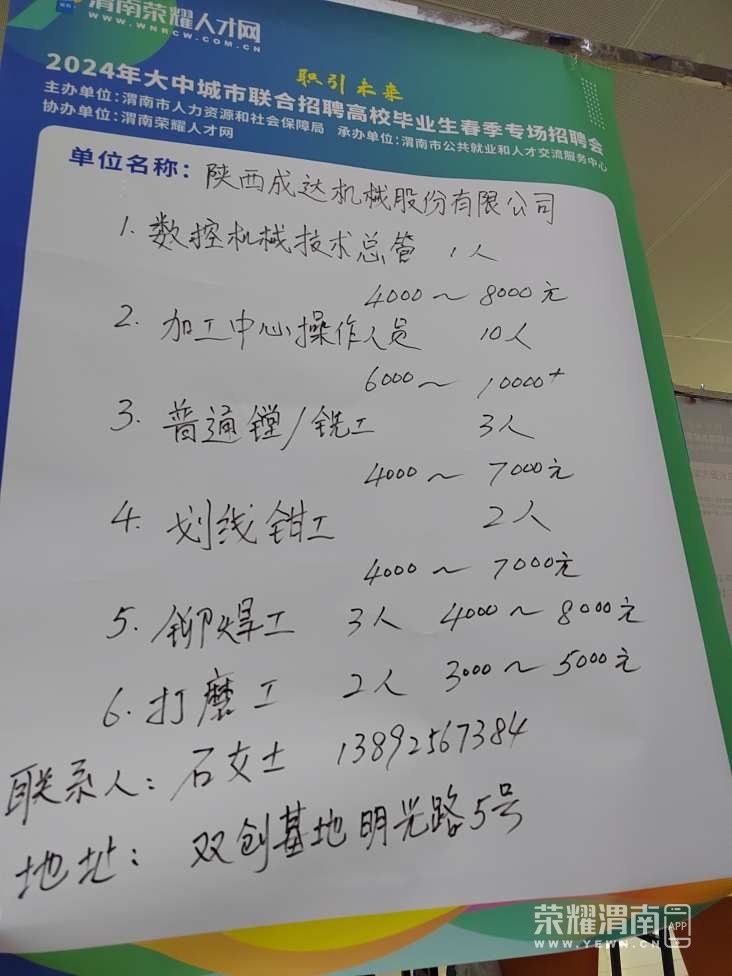 渭南荣耀人才网
WWW.WNRCW.COM.CN
职引未来
2024年大中城市联合招聘高校毕业生春季专场招聘会
主办单位:渭南市人力资源和社会保障局 承办单位:渭南市公共就业和人才交流服务中心
协办单位:渭南荣耀人才网
单位名称: 陕西成达机械股份有限公司
1. 数控机械技术总管 1人
4000～8000元
2. 加工中心操作人员 10人
6000～10000+
3. 普通镗/铣工 3人
4000～7000元
4. 划线钳工 2人
4000～7000元
5. 铆焊工 3人 4000～8000元
6. 打磨工 2人 3000～5000元
联系人: 石女士 13892567384
地址: 双创基地明光路5号
荣耀渭南 APP
WWW.YEWN.CN